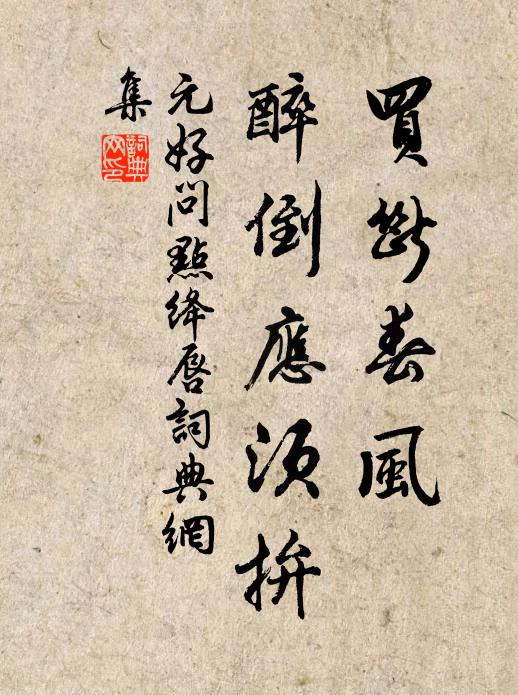 買斷春風
醉倒應須拚
元好問點絳唇詞典網
集
詞典
网印